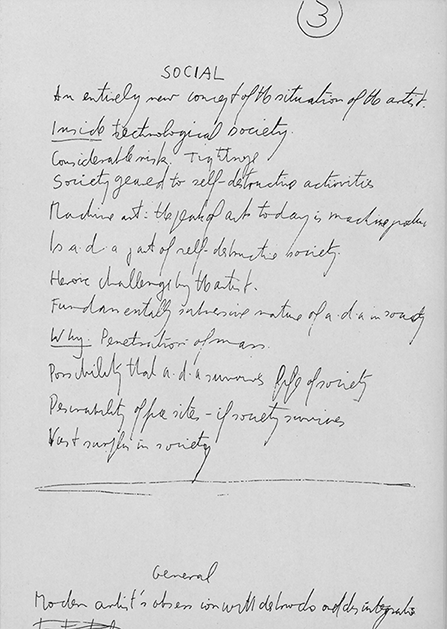 3
SOCIAL
An entirely new concept of the situation of the artist.
Inside technological society.
Considerable risk. Tightrope
Society geared to self-destructive activities
Machine art: the peak of art today is machine
Is a.d.a part of self-destructive society.
Heroic challenge by the artist.
Fundamentally subversive nature of a.d.a in society
Why. Penetration of mass.
Possibility that a.d.a survives life of society
Desirability of sites - if society survives
Vast surplus in society
General
Modern artist's obsession with and disintegration